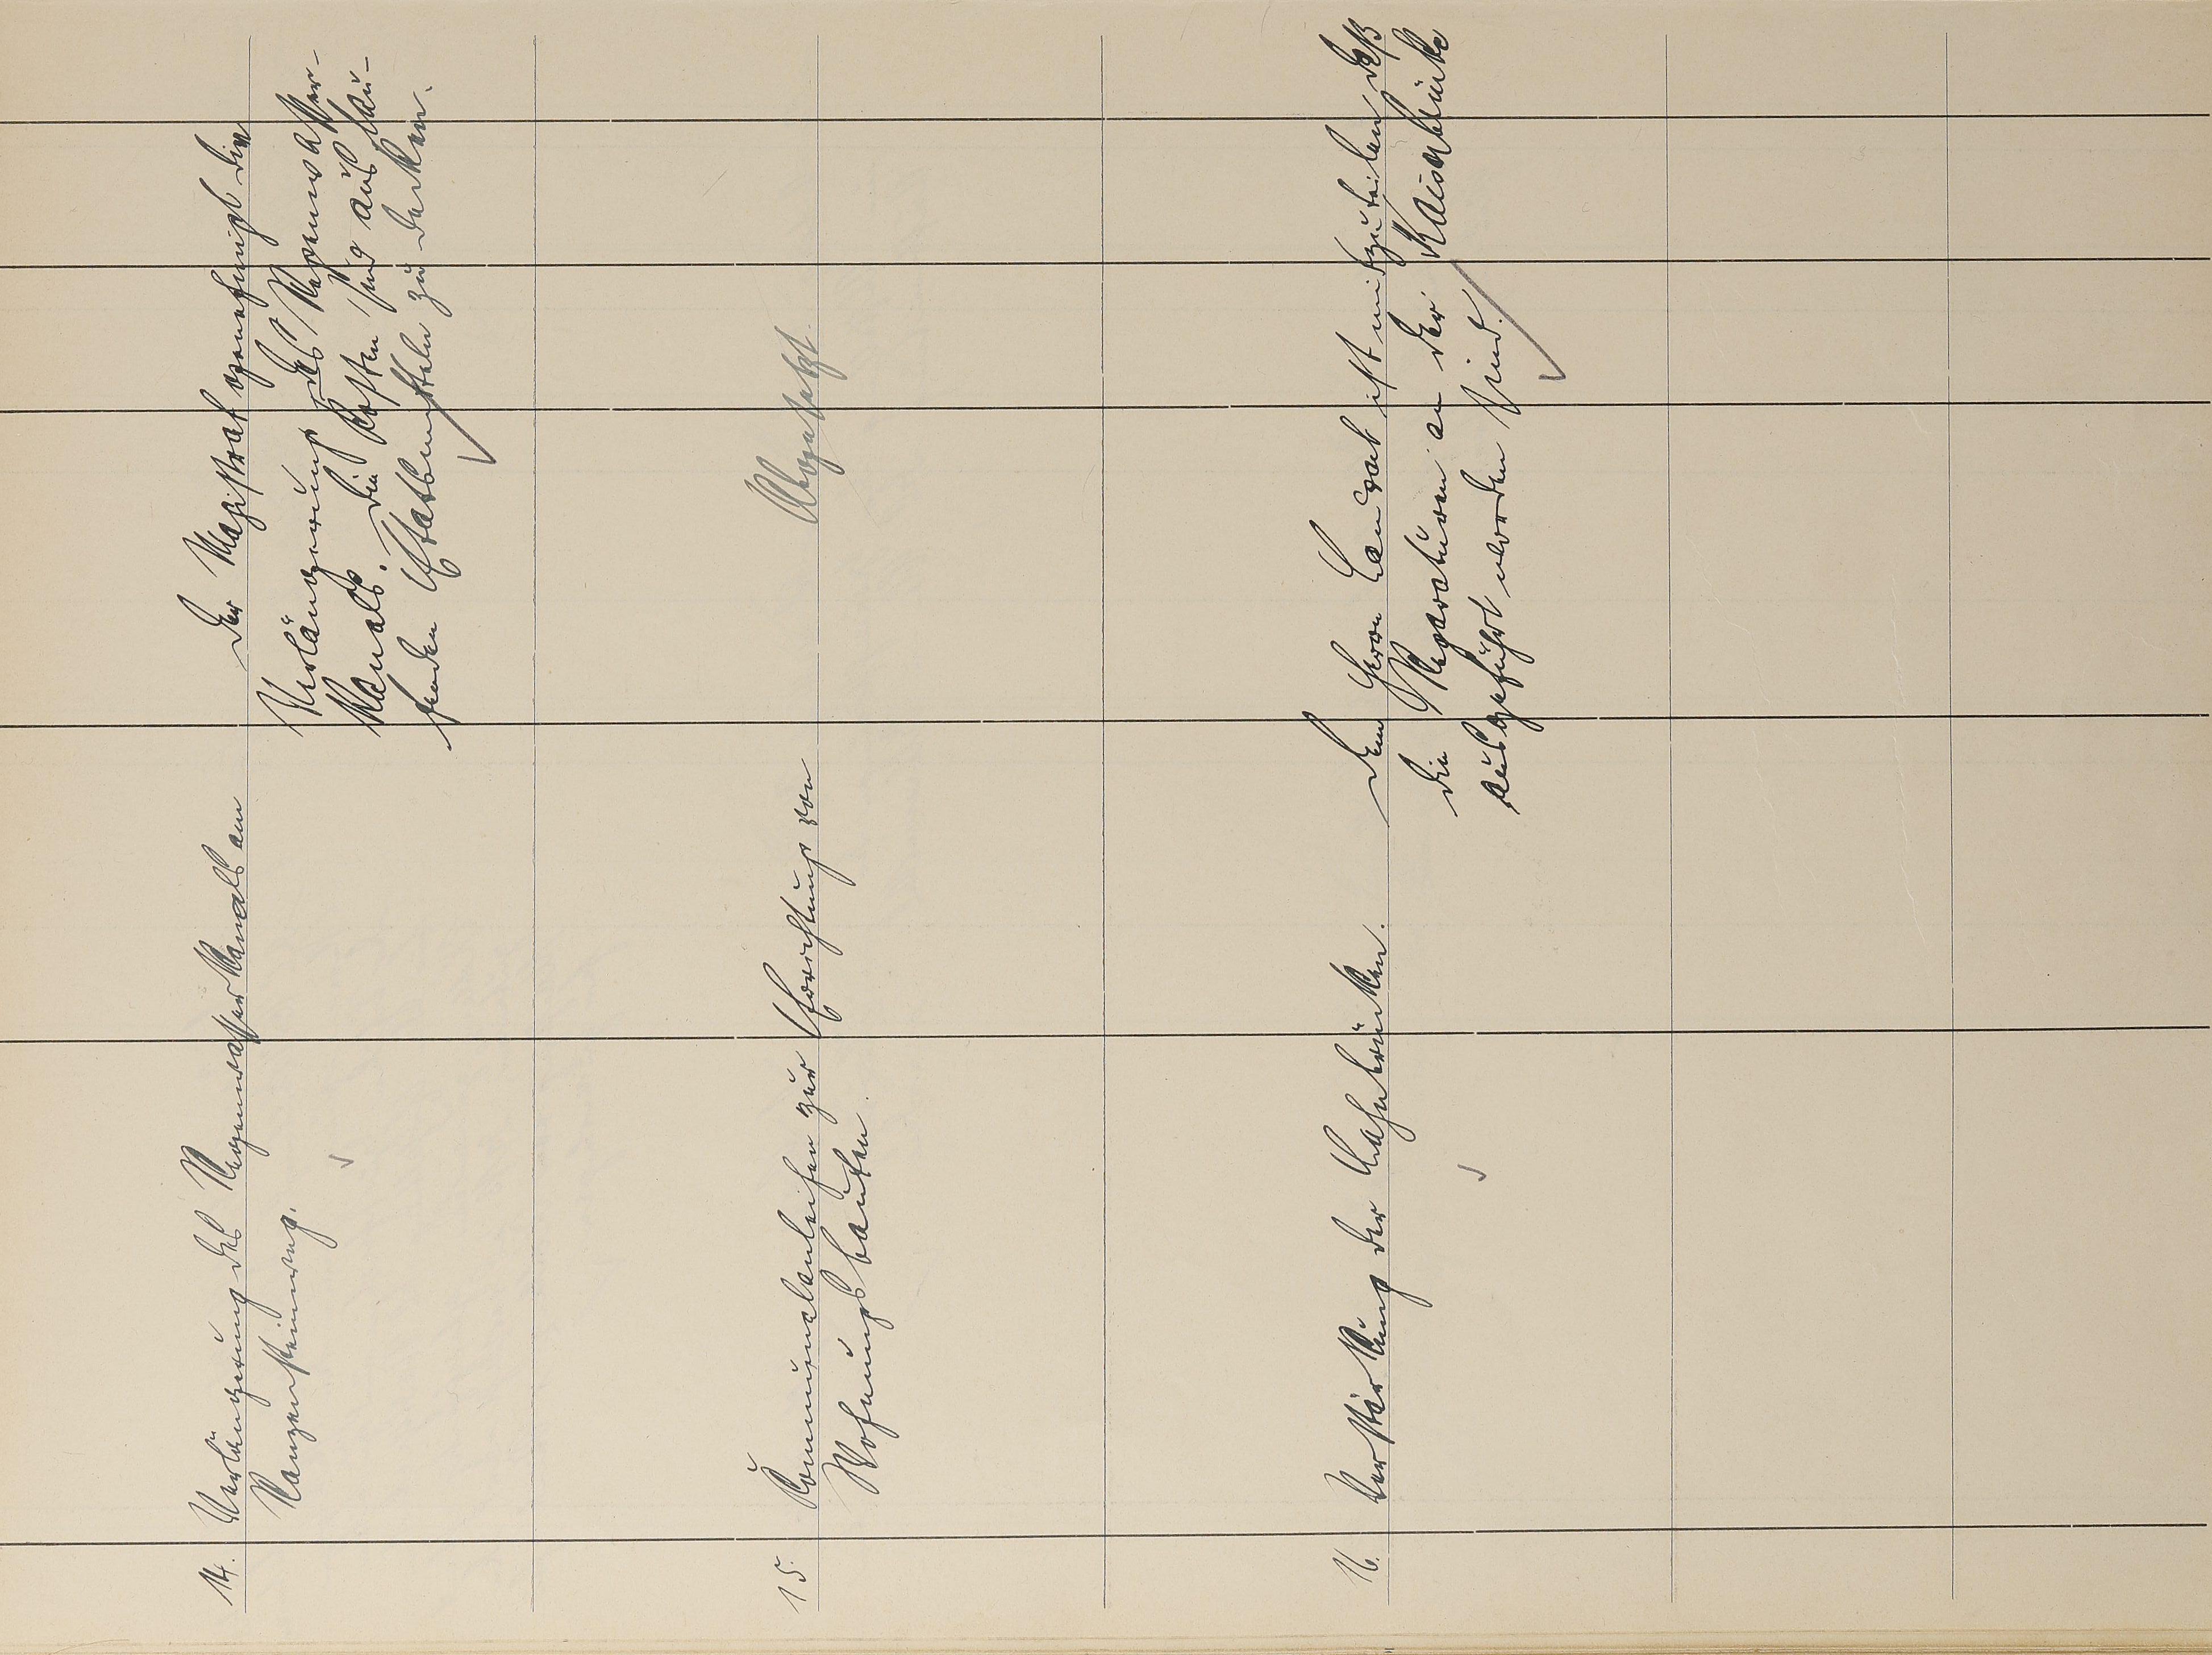 14.
Verlängerung des Regenwasserkanals am
der Magistrat genehmigt die
Verlängerung des Regenwasser-
kanals. Die Kosten sind aus lau-
fenden Etatsmitteln zu decken.
15.
Kommunalanleihen zur Errichtung von
Wohnungsbauten.
Abgesetzt.
16.
Verstärkung der Lahnbrücken.
Dem Herrn Landrat ist mitzuteilen daß
die Reparaturen an der
ausgeführt worden sind.